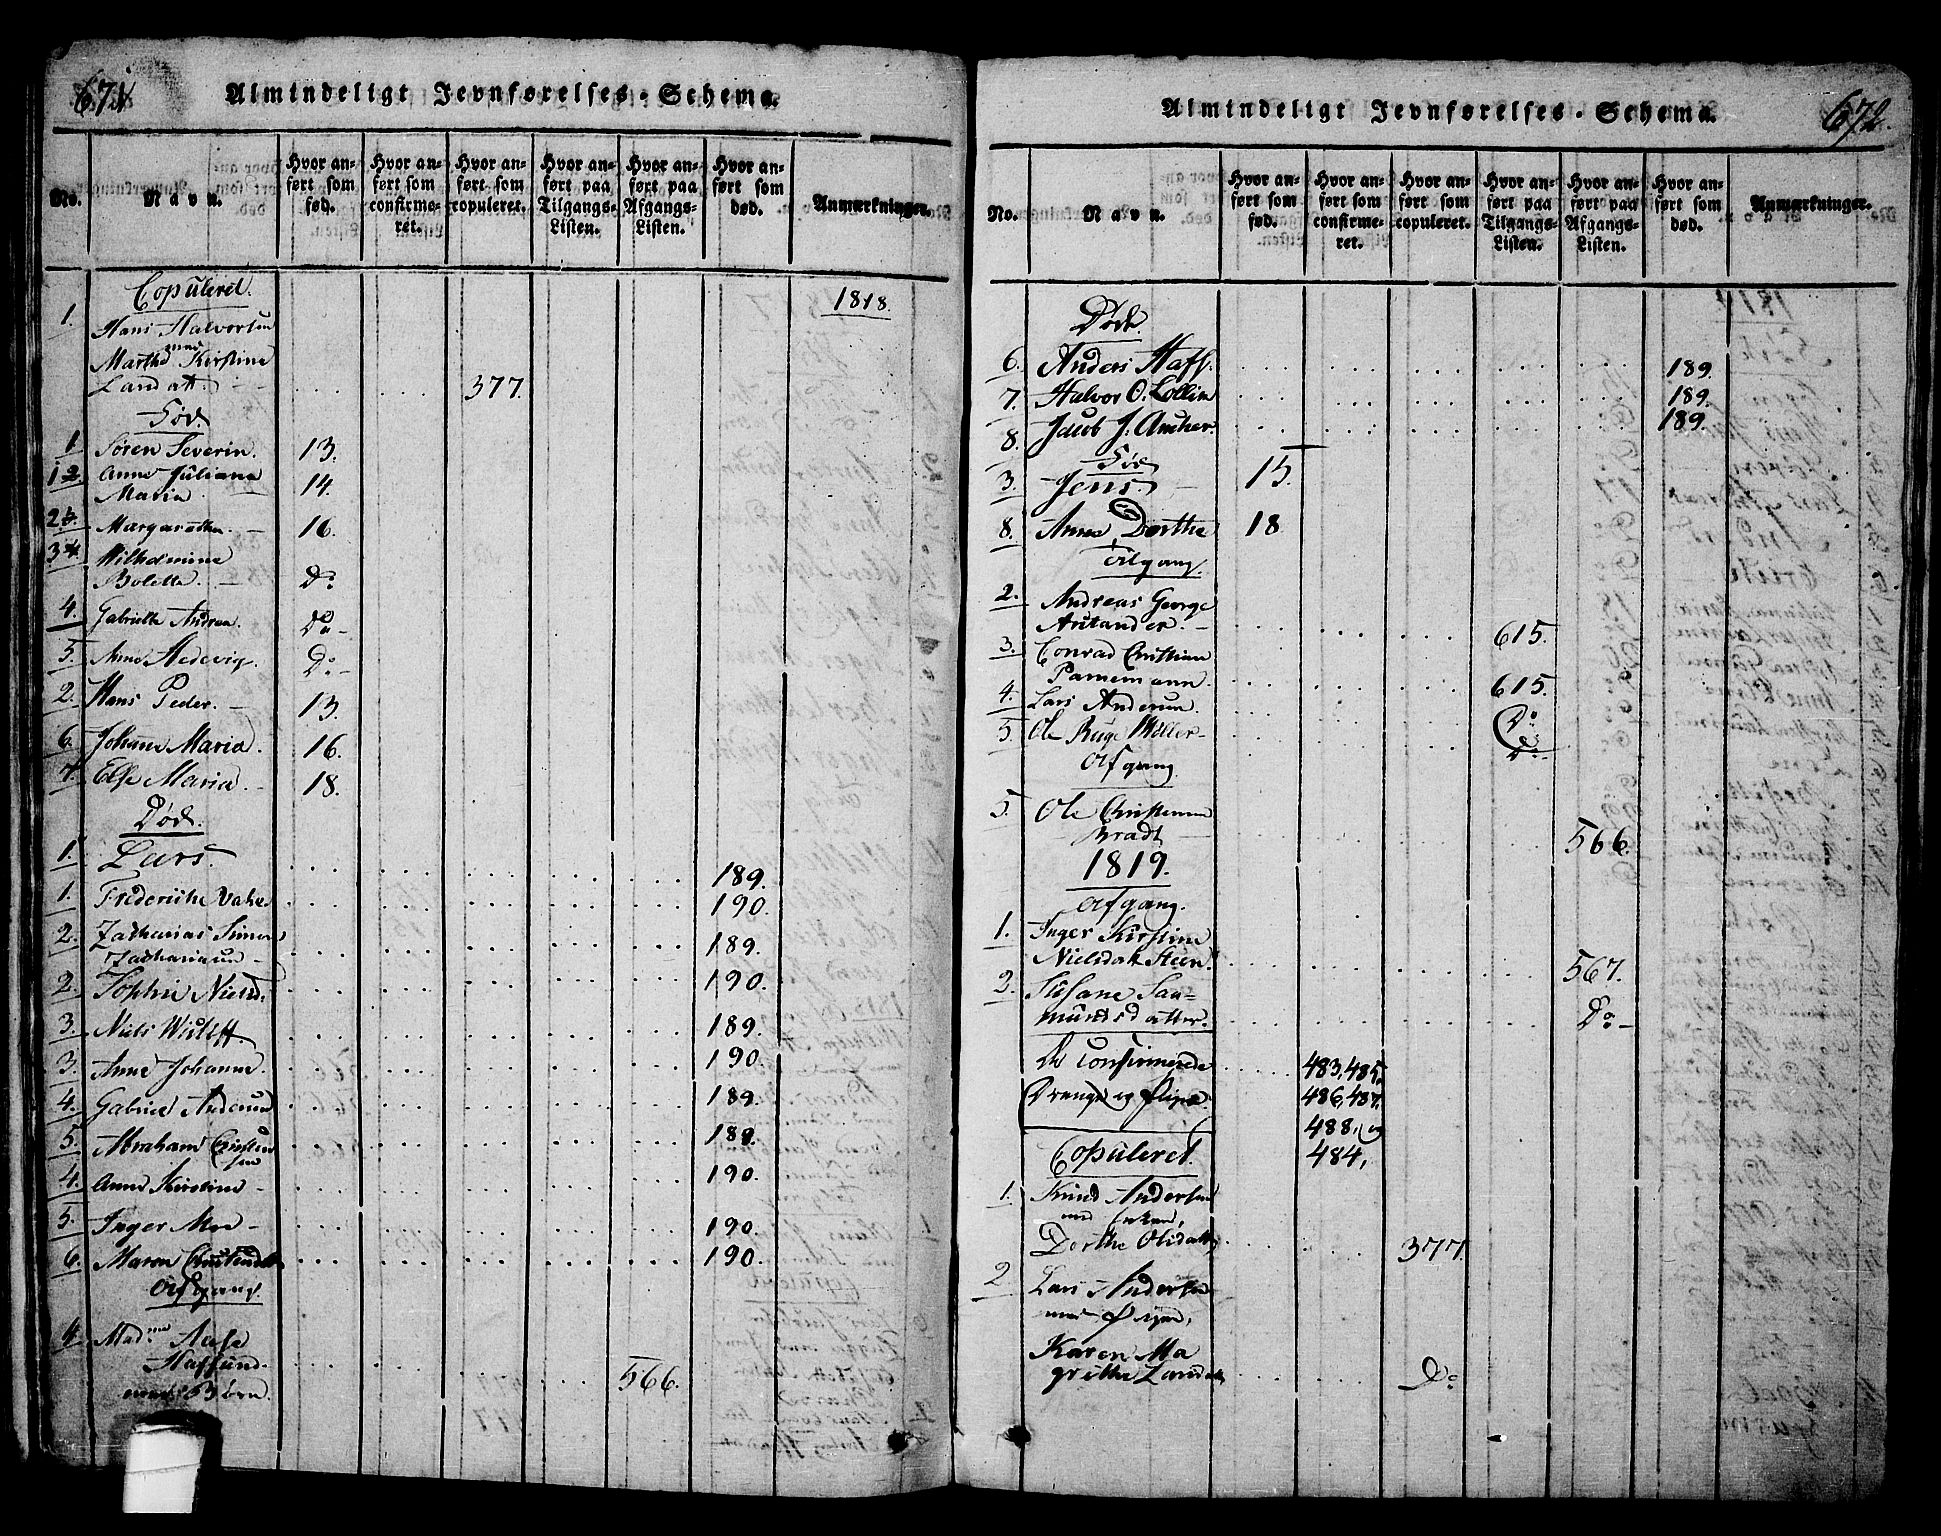 671
Almindeligt Jevnførelses-Schema.
No. Navn. Hvor anført som fød. Hvor anført som confirmeret. Hvor anført som copuleret. Hvor anført paa Tilgangs-Listen. Hvor anført paa Afgangs-Listen. Hvor anført som død. Anmærkninger.
Copuleret. 1818.
1. Hans Halvorsen
med
Marthe Kirstine
Landatt. 377.
Fød.
1 Søren Severin. 13.
1 Anne Juliana
Maria 14.
2. Margarethe. 16.
3 Wilhelmine
Bolette. Do
4. Gabrielle Andrea. Do
5. Anne Hedevig. Do
2. Hans Peder. 13.
6. Johanne Maria. 16.
7. Else Maria. 18.
Død.
1. Lars. 189.
1. Frederikke 190.
2. Zacharias Simon
Zachariasen 189.
2. Sophie Nielsd. 190.
3. Niels Wulff. 189.
3. Anne Johanne. 190.
4. Gabriel Andersen 189.
5. Abraham Christen
sen 189.
4. Anne Kirstine 190.
5. Inger Moe 190.
6. Maren 190.
Afgang.
4. Madme Aase
Hassund
med Børn. 566.
672.
Almindeligt Jevnførelses-Schema.
No. Navn. Hvor anført som fød. Hvor anført som confirmeret. Hvor anført som copuleret. Hvor anført paa Tilgangs-Listen. Hvor anført paa Afgangs-Listen. Hvor anført som død. Anmærkninger.
Død.
6. Anders 189.
7. Halvor O. 189.
8. Jacob J. 189.
Fød
3. Jens. 15.
8. Anne Dorthe 18
Tilgang.
2. Andreas George
615.
3. Conrad Christian
615.
4. Lars Andersen Do
5 Ole Ruge Møller Do
Afgang
5. Ole Christensen
Bradt 566.
1819.
Afgang.
1. Inger Kirstine
Nielsdatt Steen. 567.
2. Susane Saa-
mundsdatter. Do
De Confirmerede 483, 485,
Drenge og Piger. 486, 487,
488, og
Copuleret. 484,
1. Knud Andersen
med Enken,
Dorthe Olsdatt, 377.
2 Lars Andersen
med Pigen,
Karen Ma
grethe Landatt, Do